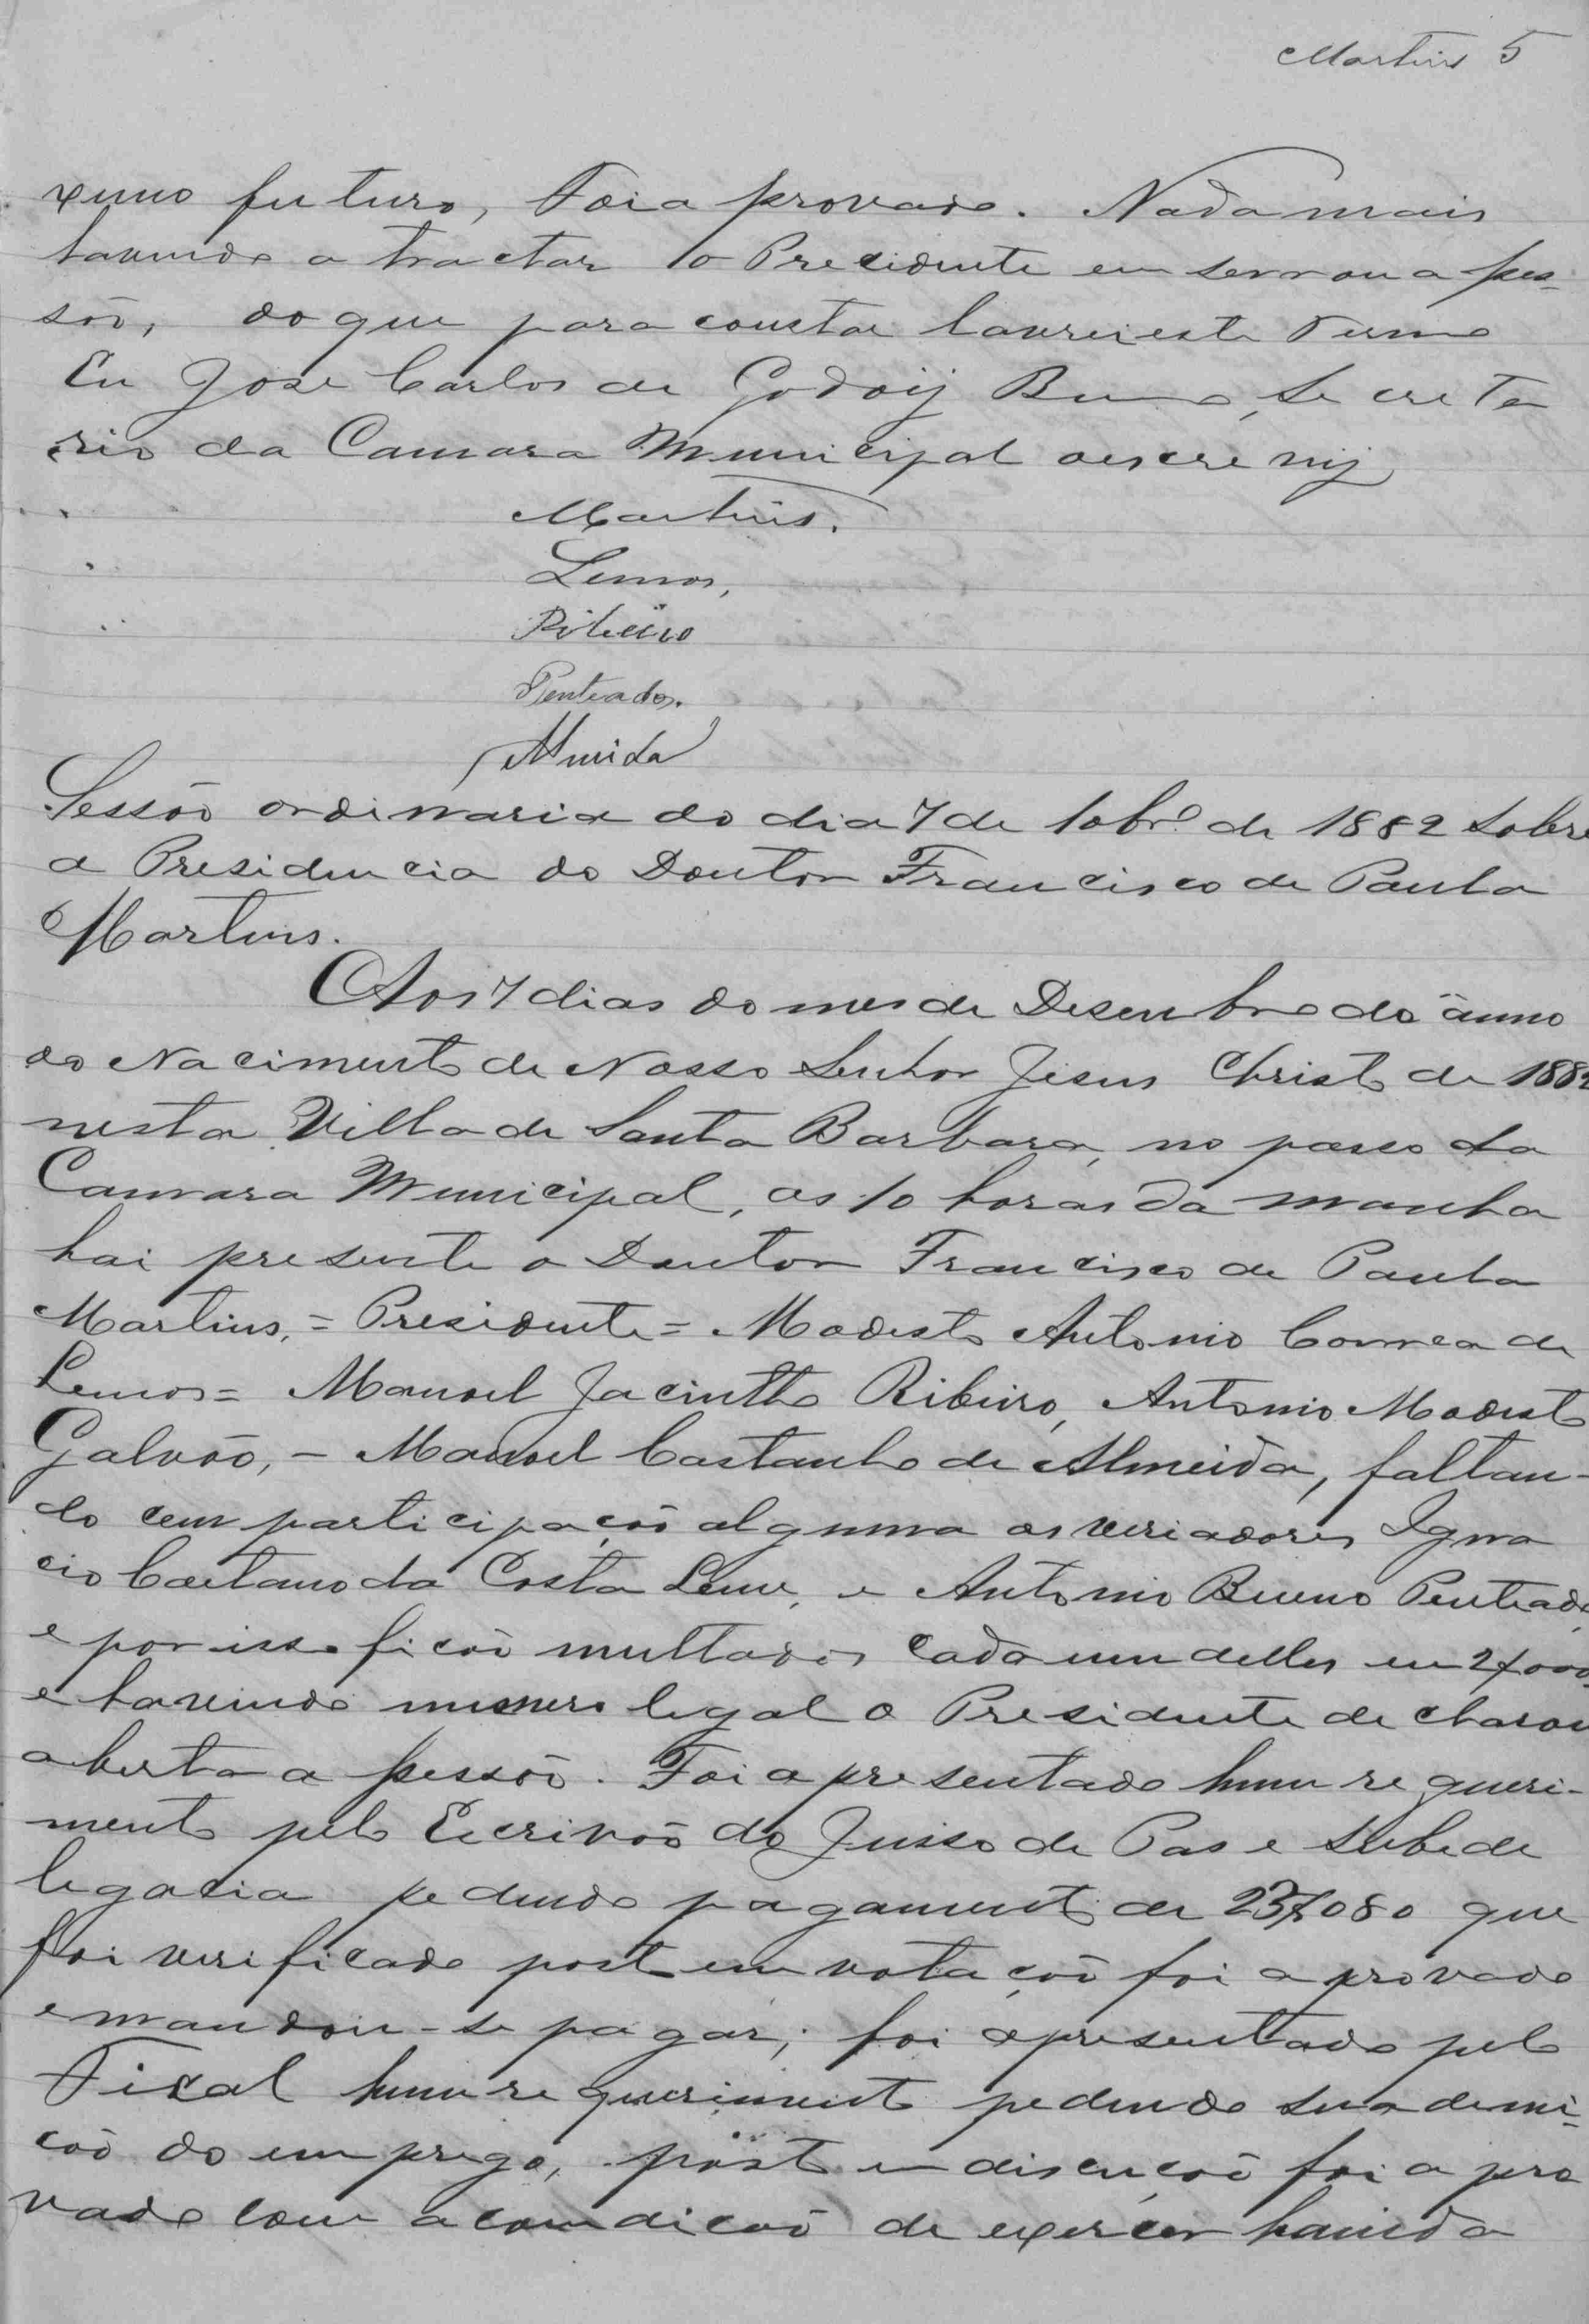 Martins 5
ximo futuro, Foi aprovado. Nada mais
havendo a tractar o Presidente enserrou a ses-
são, do que para constar lavrei este termo
Eu Jose Carlos de Godoij Bueno, Secreta
rio da Camara Municipal o escrevij
Martins.
Lemos,
Ribeiro
Penteado.
Almeida
Sessão ordinaria do dia 7 de 10brº de 1882 sobre
a Presidencia do Doutor Francisco de Paula
Martins.
Aos 7 dias do mes de Desembro do anno
do Nacimento de Nosso Senhor Jesus Christo de 1882
nesta Villa de Santa Barbara, no passo da
Camara Municipal, as 10 horas da manha
hai presente o Doutor Francisco de Paula
Martins, = Presidente = Modesto Antonio Correa de
Lemos = Manoel Jacintho Ribeiro, Antonio Modesto
Galvão, - Manoel Castanho de Almeida, faltan-
do cem participação alguma os veriadores Igna
cio Caetano da Costa Leme, e Antonio Bueno Penteado
e por isso ficão multados cada um delles em 2$000
e havendo numero legal o Presidente declarou
aberta a sessão. Foi apresentado hum requeri-
mento pelo Escrivão do Juiso de Pas e Subede
legacia pedindo pagamento de 23$080 que
foi verificado posto em votação foi aprovado
e mandou-se pagar; foi apresentado pelo
Fiscal hum requerimento pedindo sua demi-
cão do emprego, posto em discução foi apro
vado com a condicão de exercer hainda